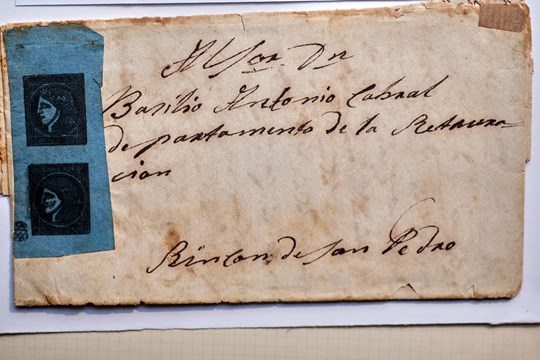 Al Sor. Dn
Basilio Antonio Cabral
departamento de la Restaura-
cion
Rincon de San Pedro